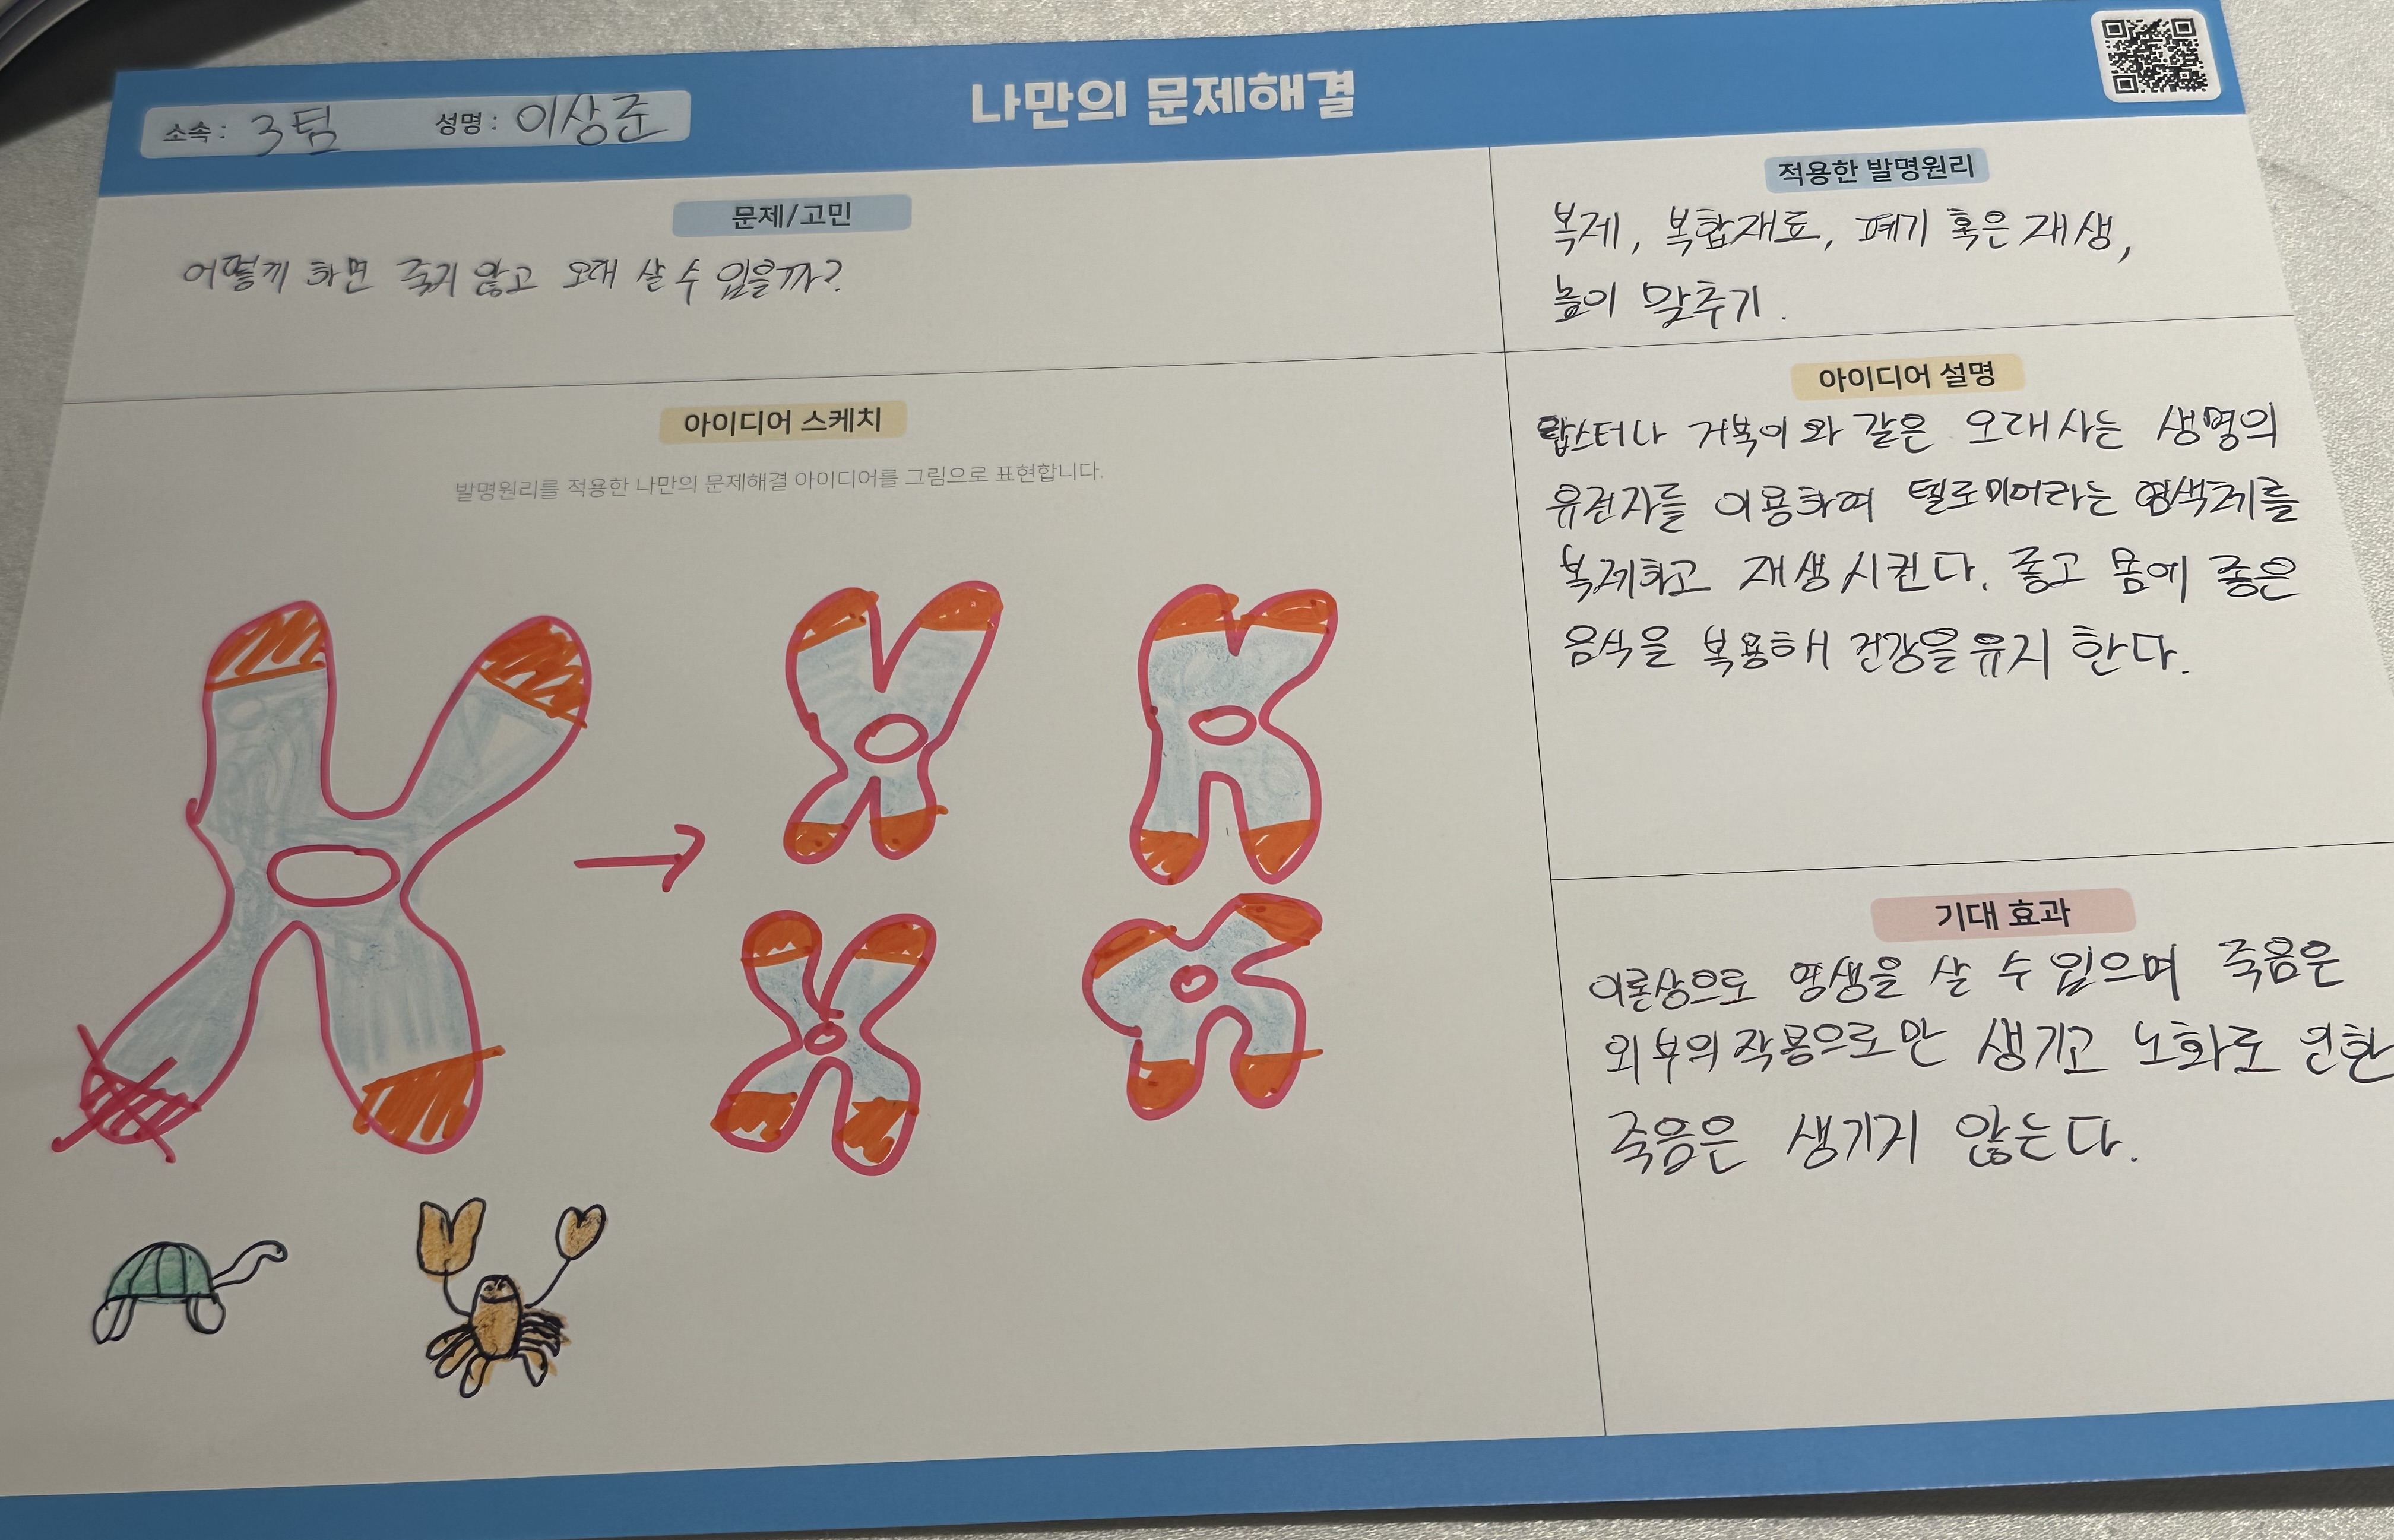 나만의 문제해결
소속 : 3팀 성명 : 이상준
문제/고민
어떻게 하면 죽지 않고 오래 살 수 있을까?
적용한 발명원리
복제, 복합재료, 폐기 혹은 재생,
높이 맞추기.
아이디어 스케치
발명원리를 적용한 나만의 문제해결 아이디어를 그림으로 표현합니다.
아이디어 설명
랍스터나 거북이와 같은 오래사는 생명의
유전자를 이용하여 텔로미어라는 염색체를
복제하고 재생시킨다. 좋고 몸에 좋은
음식을 복용해 건강을 유지 한다.
기대 효과
이론상으로 영생을 살 수 있으며 죽음은
외부의 작용으로만 생기고 노화로 인한
죽음은 생기지 않는다.